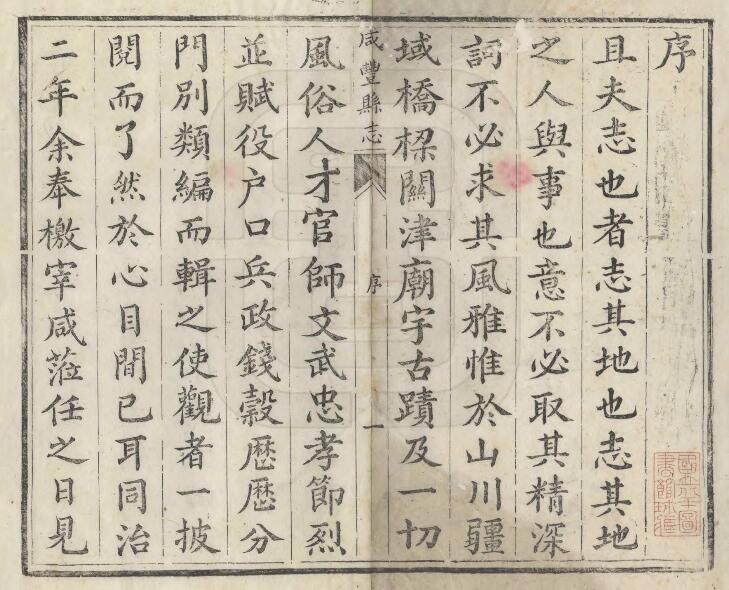 序
且夫志也者志其地也志其地
之人與事也意不必取其精深
詞不必求其風雅惟於山川疆
域橋樑關津廟宇古蹟及一切
咸豐縣志
序
一
風俗人才官師文武忠孝節烈
並賦役户口兵政錢穀歷歷分
門別類編而輯之使觀者一披
閱而了然於心目間已耳同治
二年余奉檄宰咸蒞任之日見